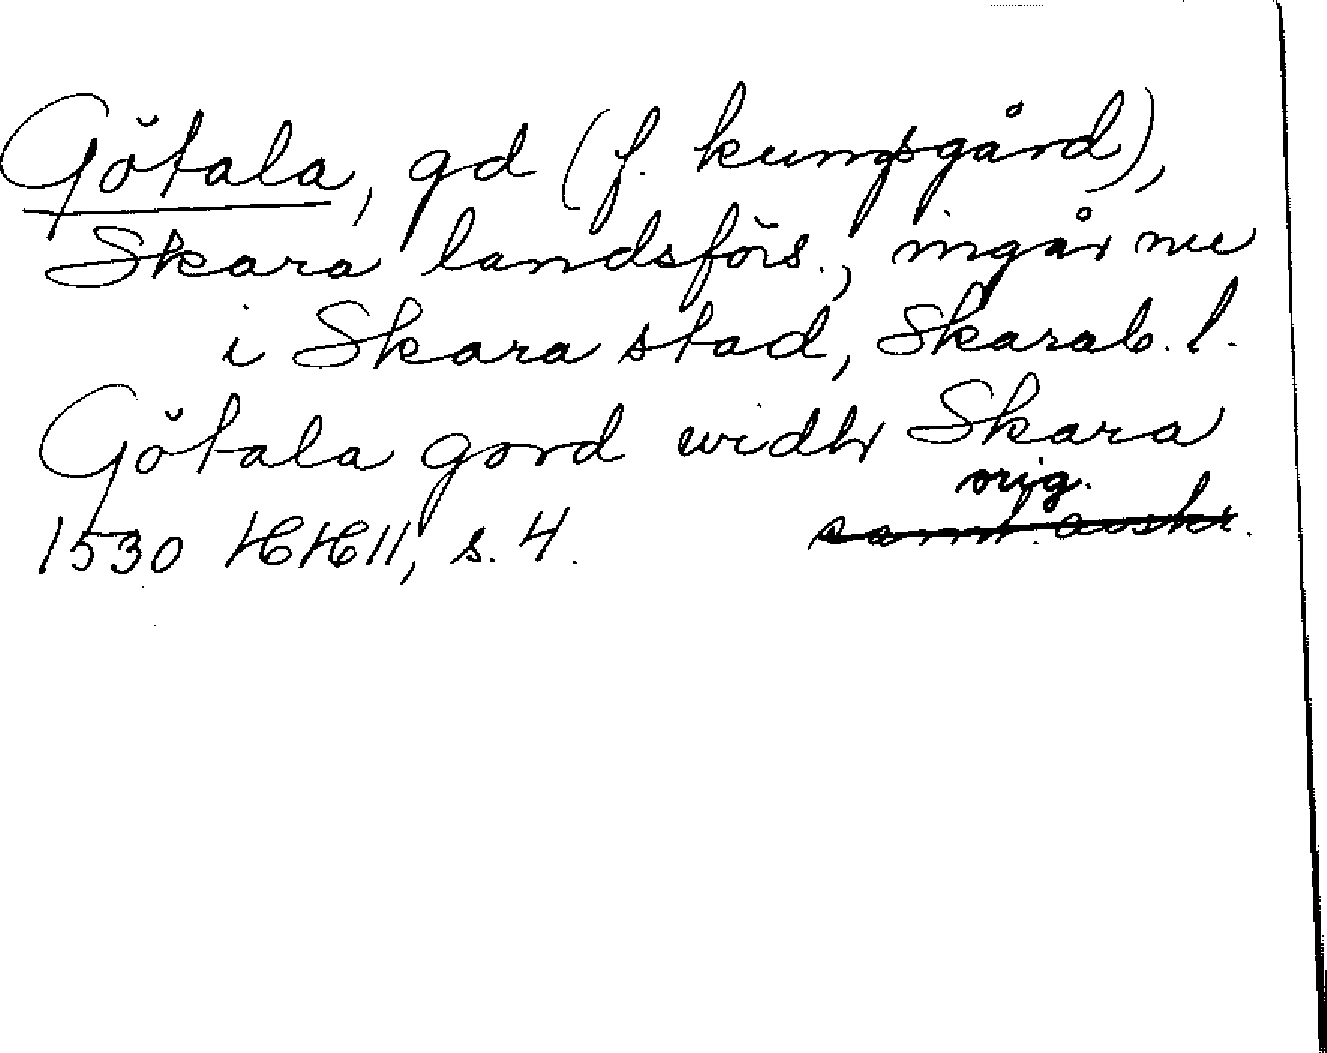 Götala, gd (f. kungsgård),
Skara landsförs., ingår nu
i Skara stad, Skarab. l.
Götala gord widhr Skara
orig.
1530 HH 11, s. 4. samt. avskr.